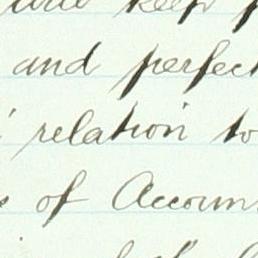 keep
and perfect
relation to
of Accoun